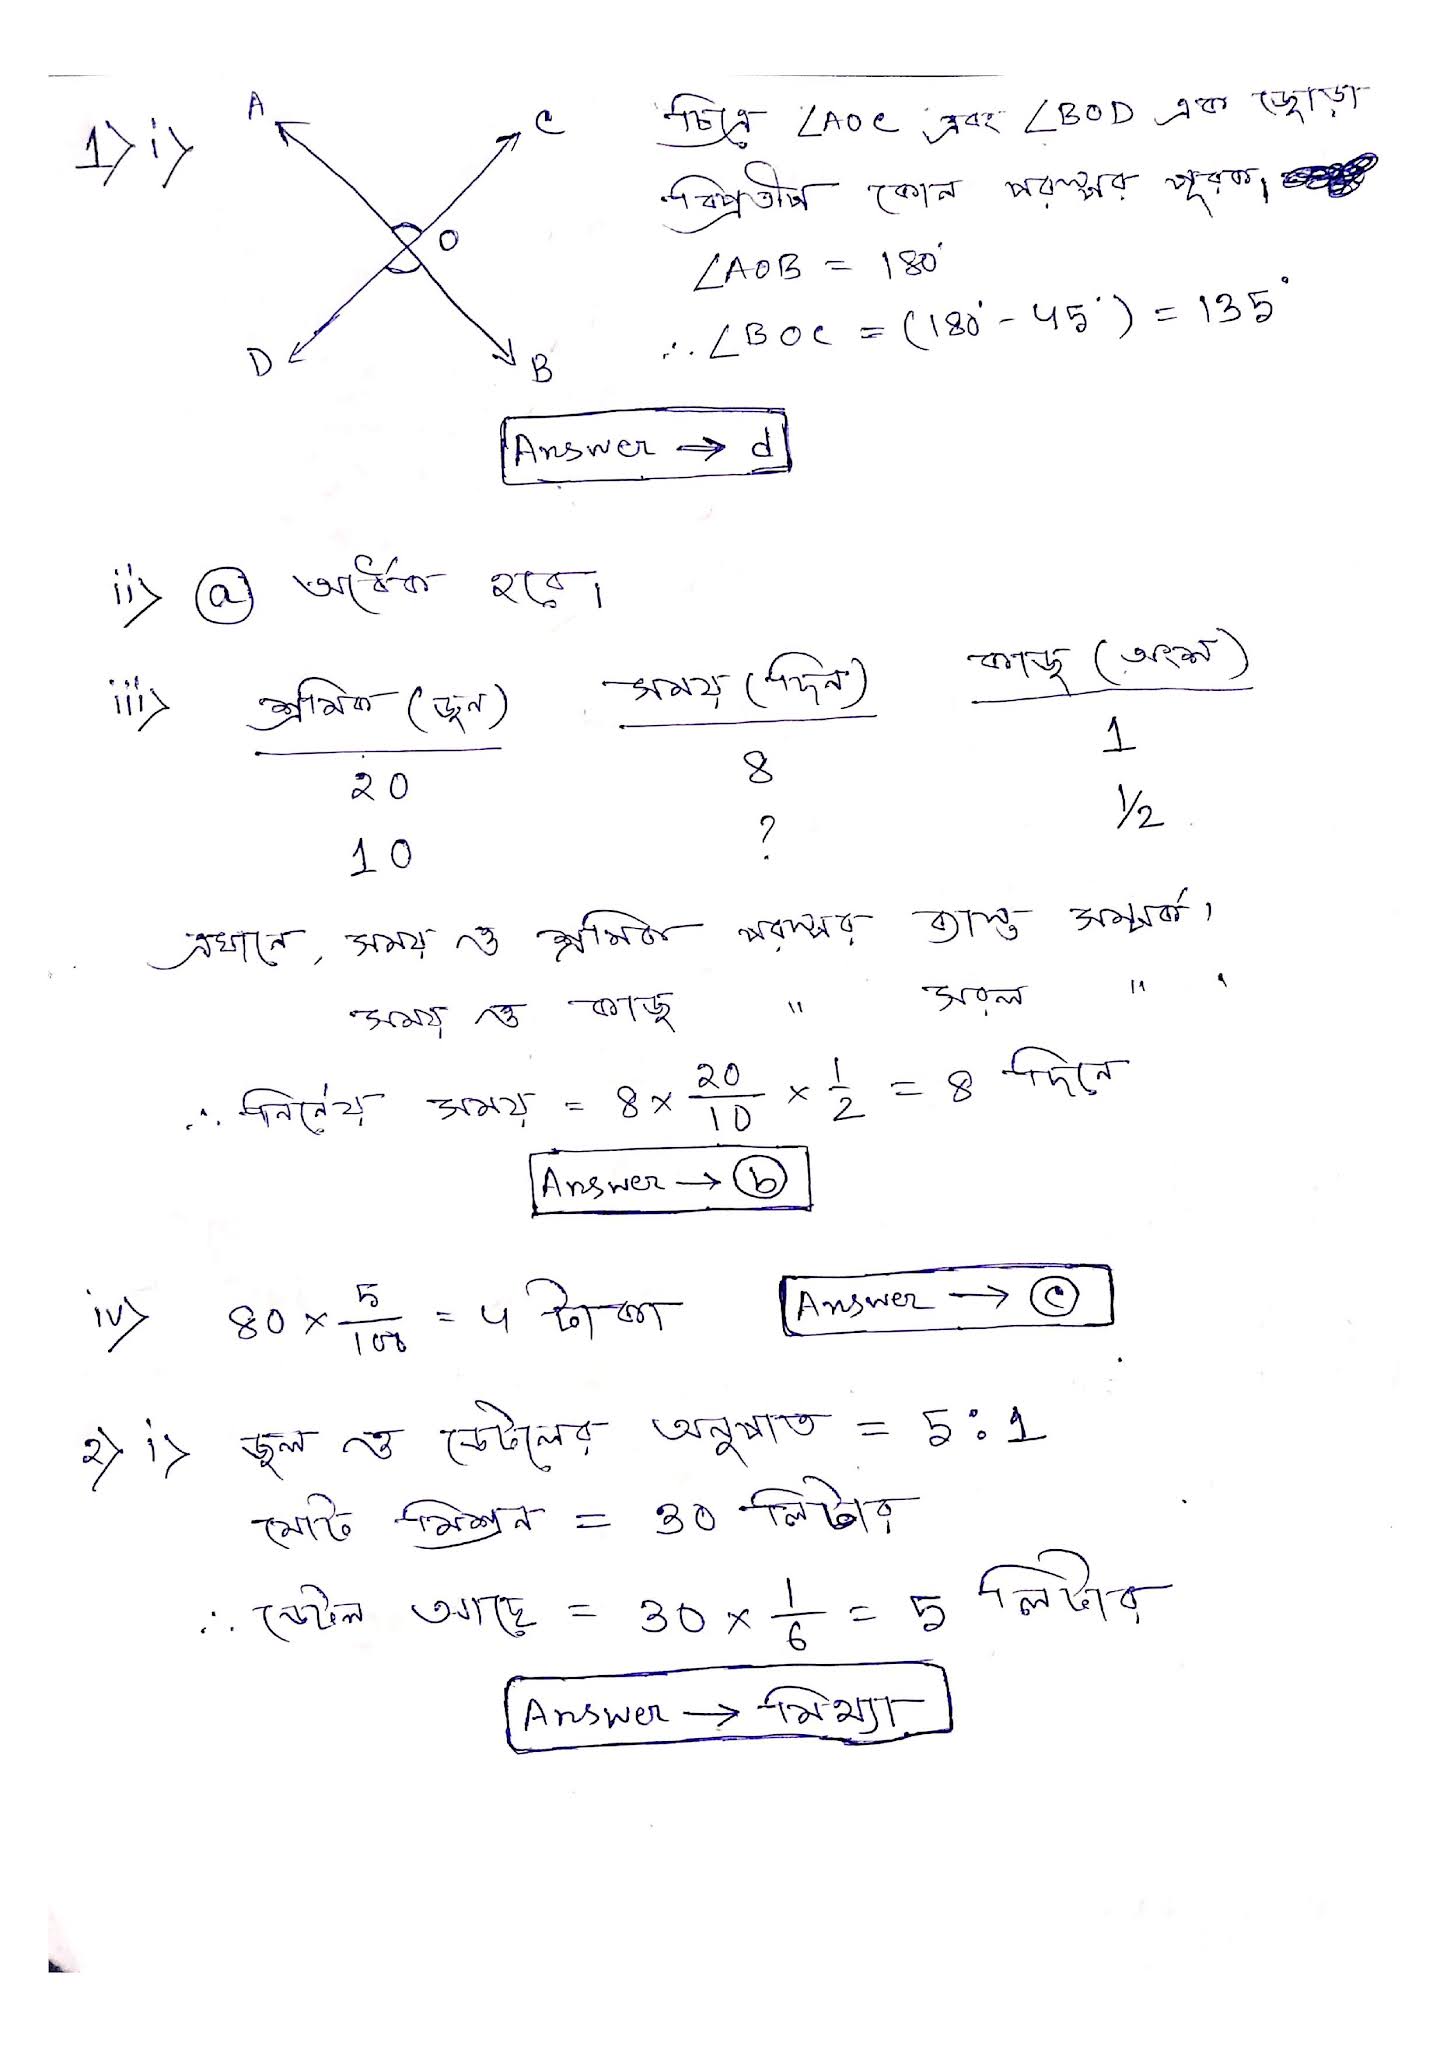 1> i>
A
C
O
D
B
চিত্রে ∠AOC এবং ∠BOD এক জোড়া
বিপ্রতীপ কোন পরস্পর পূরক।
∠AOB = 180°
∴ ∠BOC = (180° - 45°) = 135°
Answer → d
ii> ⓐ অর্ধেক হবে।
iii> শ্রমিক (জন) সময় (দিন) কাজ (অংশ)
20 8 1
10 ? 1/2
এখানে, সময় ও শ্রমিক পরস্পর ব্যস্ত সম্পর্ক।
সময় ও কাজ " সরল " '
∴ নির্নেয় সময় = 8 × 20/10 × 1/2 = 8 দিনে
Answer → ⓑ
iv> 80 × 5/100 = 4 টাকা Answer → ⓒ
2> i> জল ও ডেটলের অনুপাত = 5:1
মোট মিশ্রন = 30 লিটার
∴ ডেটল আছে = 30 × 1/6 = 5 লিটার
Answer → মিথ্যা